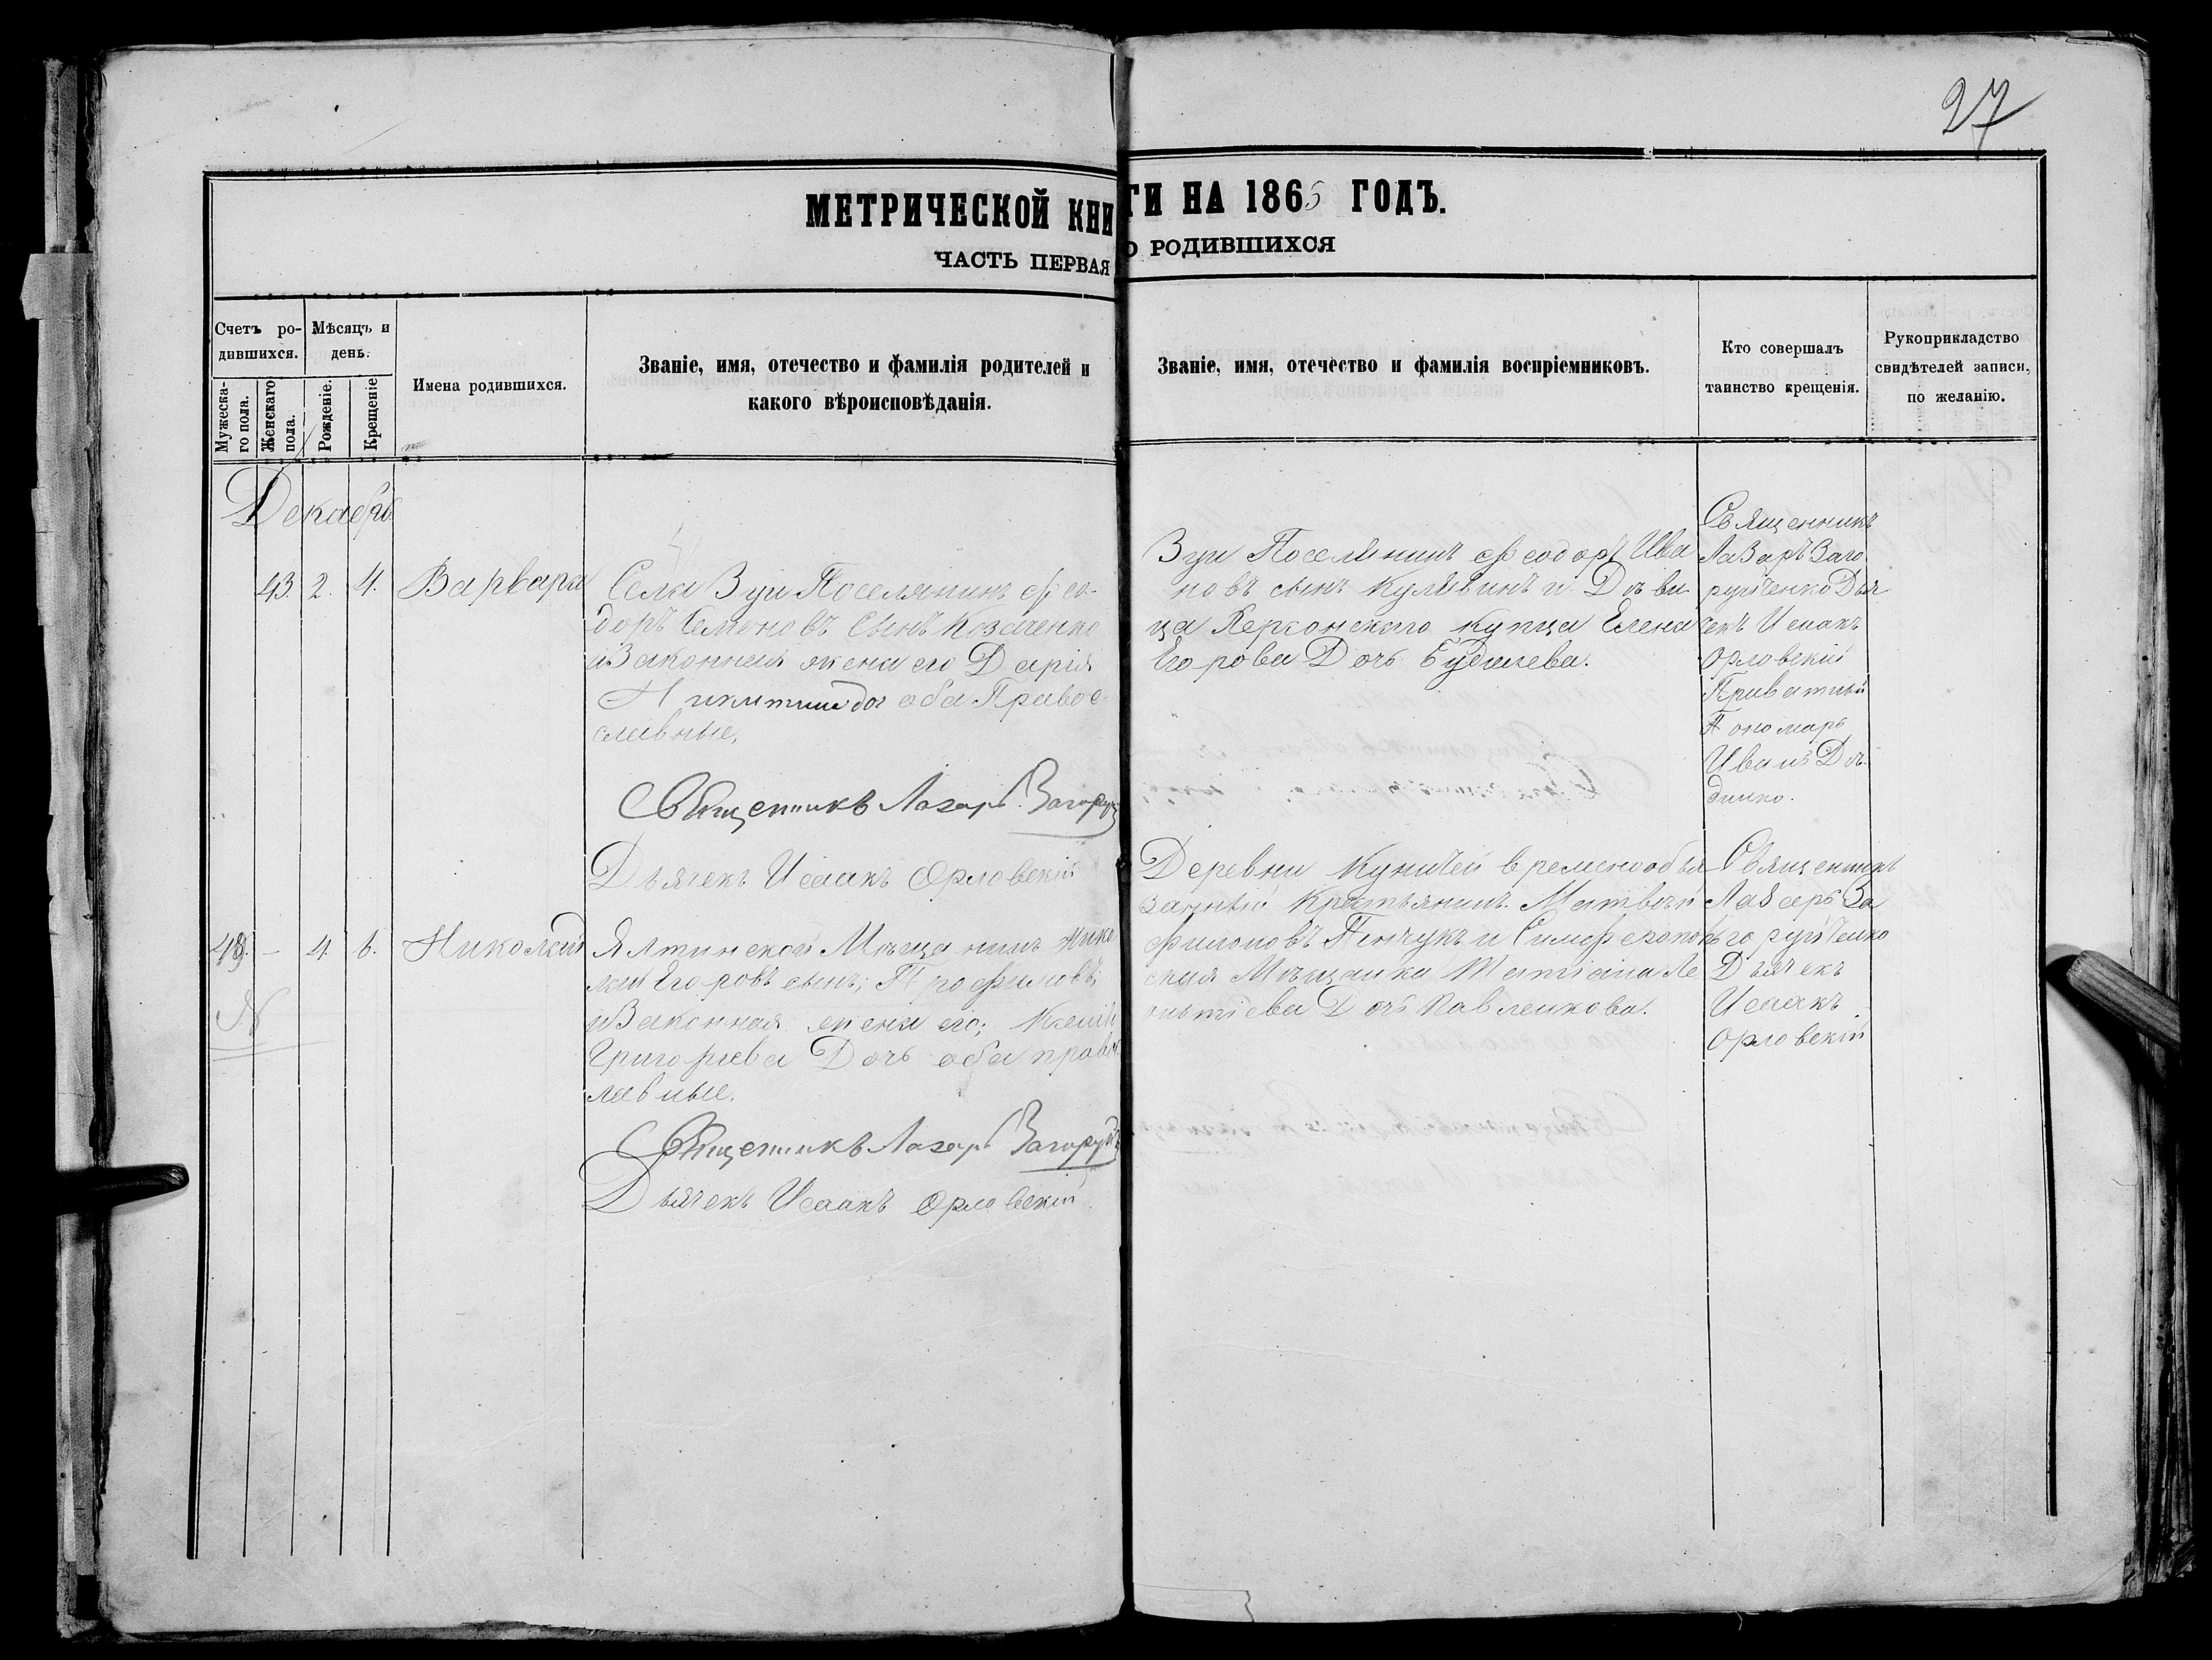 27
МЕТРИЧЕСКОЙ КНИГИ НА 1865 ГОДЪ.
ЧАСТЬ ПЕРВАЯ О РОДИВШИХСЯ
Счетъ ро-
дившихся.
Мужеска-
го пола.
Женскаго
пола.
Мѣсяцъ и
день.
Рожденіе.
Крещеніе
Имена родившихся.
Званіе, имя, отечество и фамилія родителей и
какого вѣроисповѣданія.
Званіе, имя, отечество и фамилія воспріемниковъ.
Кто совершалъ
таинство крещенія.
Рукоприкладство
свидѣтелей записи,
по желанію.
Декабрь
43. 2. 4. Варвара
Села Зуи Поселянинъ Фео-
доръ Семеновъ Сынъ Козаченко
и Законная жена его Дарія
Никитина доч оба Правос
лавные,
Священникъ Лазарь Загоруй
Дьячекъ Исаакъ Орловскій
Зуи Поселянинъ Феодоръ Ива
новъ сынъ Кулявинъ и Дѣви
ца Херсонскаго купца Елена
Егорова Дочь Будалева.
Священникъ
Лазаръ Заго
руйченко Дья
чекъ Исаакъ
Орловскій
Приватный
Пономарь
Иванъ Дѣ-
динко.
49. – 4. 6. Николай
Ялтинской Мѣщанинъ Нико
лай Егоровъ сынъ; Трофимовъ;
и Законная жена его; Ксенія
Григорьева Дочь оба правос
лавные.
Священникъ Лазарь Загоруй
Дьячекъ Исаакъ Орловскій
Деревни Куничей временообя
занный Крестьянинъ Матвѣй
Филоновъ Пинчукъ и Симферополь
ская Мѣщанка Татіана Ле
онтіева Дочь Павленкова.
Священникъ
Лазарь За
горуйченко
Дьячекъ
Исаакъ
Орловскій
N